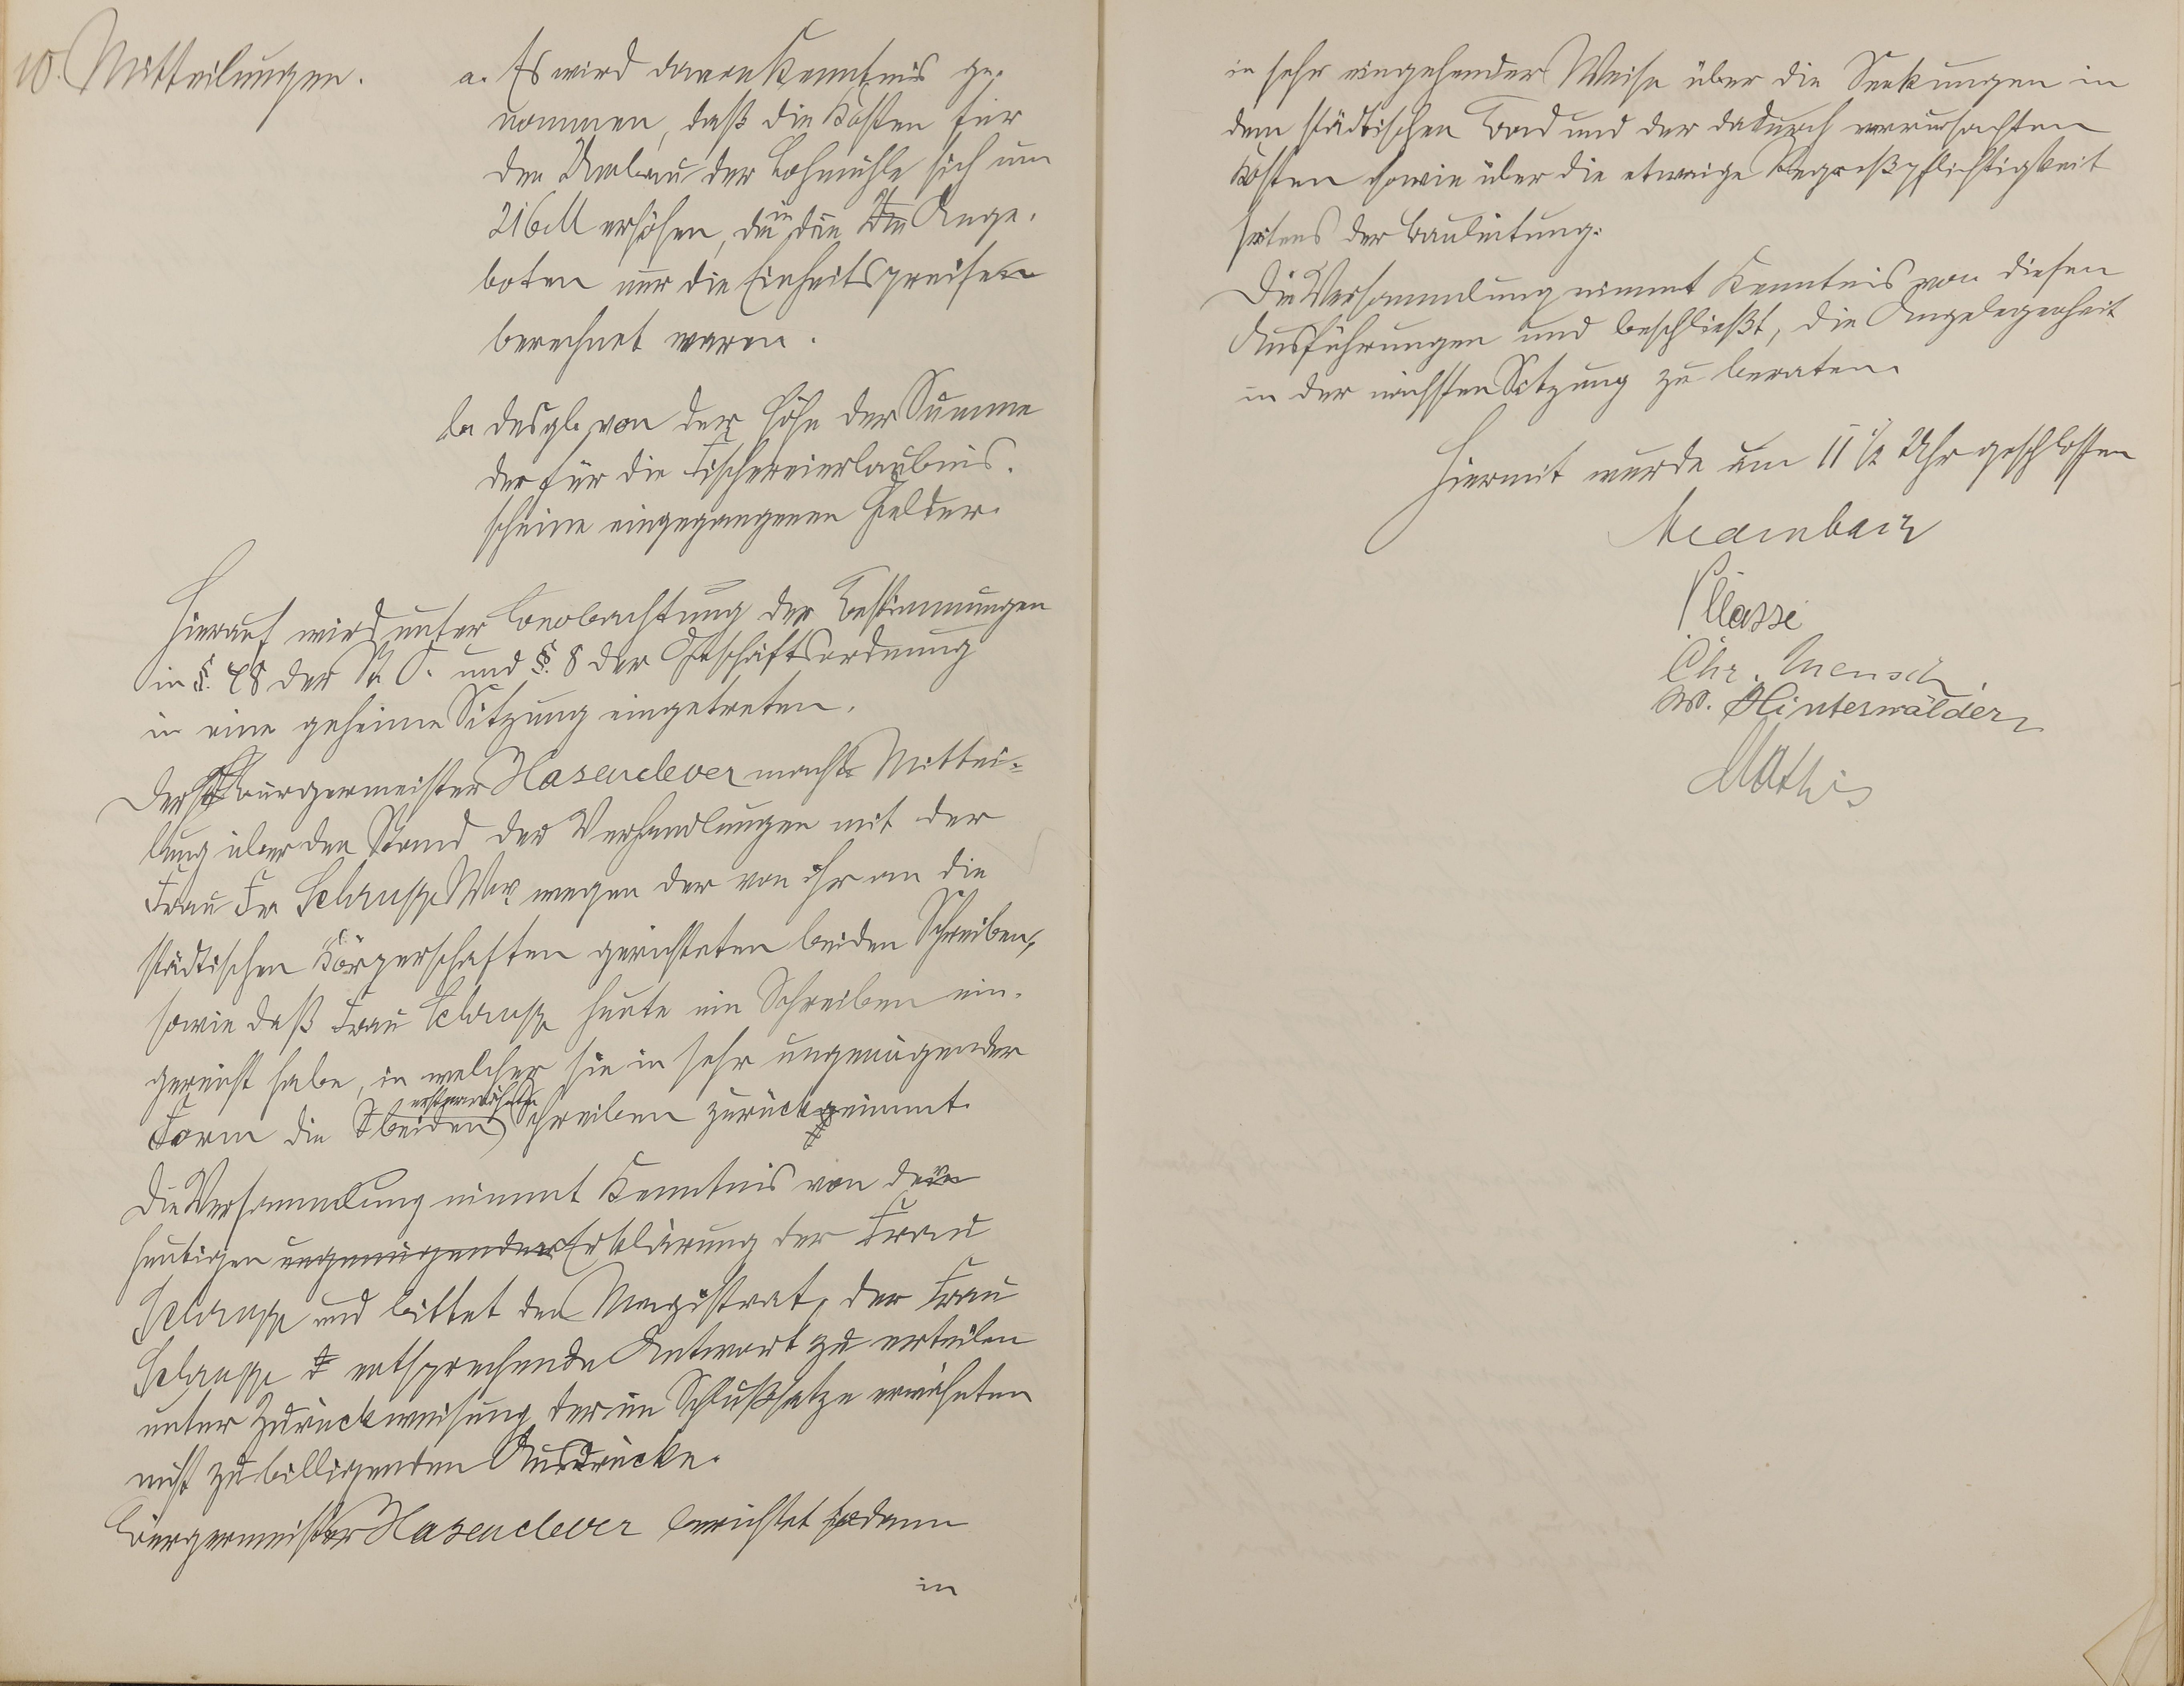 10. Mitteilungen.
a. Es wird davon Kenntnis ge-
nommen, daß die Kosten für
den Umbau der Lohmühle sich um
216 M erhöhen, da in den Ange-
boten nur die Einheitspreise
berechnet waren.
b. desgl. von der Höhe der Summe
der für die Fischereierlaubnis-
scheine eingegangenen Gelder.
Hierauf wird unter Beobachtung der Bestimmungen
in §. 48 der St. O. und §. 8 der Geschäftsordnung
in eine geheime Sitzung eingetreten.
Der Bürgermeister Hasenclever macht Mittei-
lung über den Stand der Verhandlungen mit der
Frau Fr. Schrupp Ww. wegen der von ihr an die
städtischen Körperschaften gerichteten beiden Schreiben,
sowie daß Frau Schrupp heute ein Schreiben ein-
gereicht habe, in welcher sie in sehr ungenügender
Form die beiden erstgenannten Schreiben zurücknimmt.
Die Versammlung nimmt Kenntnis von der
heutigen ungenügenden Erklärung der Frau
Schrupp und bittet den Magistrat, der Frau
Schrupp entsprechende Antwort zu erteilen
unter Zurückweisung der im Schlußsatze erwähnten
nicht zu billigenden Ausdrücke.
Bürgermeister Hasenclever berichtet sodann
in
in sehr eingehender Weise über die Senkungen in
dem städtischen Bad und der dadurch verursachten
Kosten sowie über die etwaige Regreßpflichtigkeit
seitens der Bauleitung.
Die Versammlung nimmt Kenntnis von diesen
Ausführungen und beschließt, die Angelegenheit
in der nächsten Sitzung zu beraten.
Hiermit wurde um 11 1/2 Uhr geschlossen
Chr. Mensch.
W. Hinterwälder
Mathis